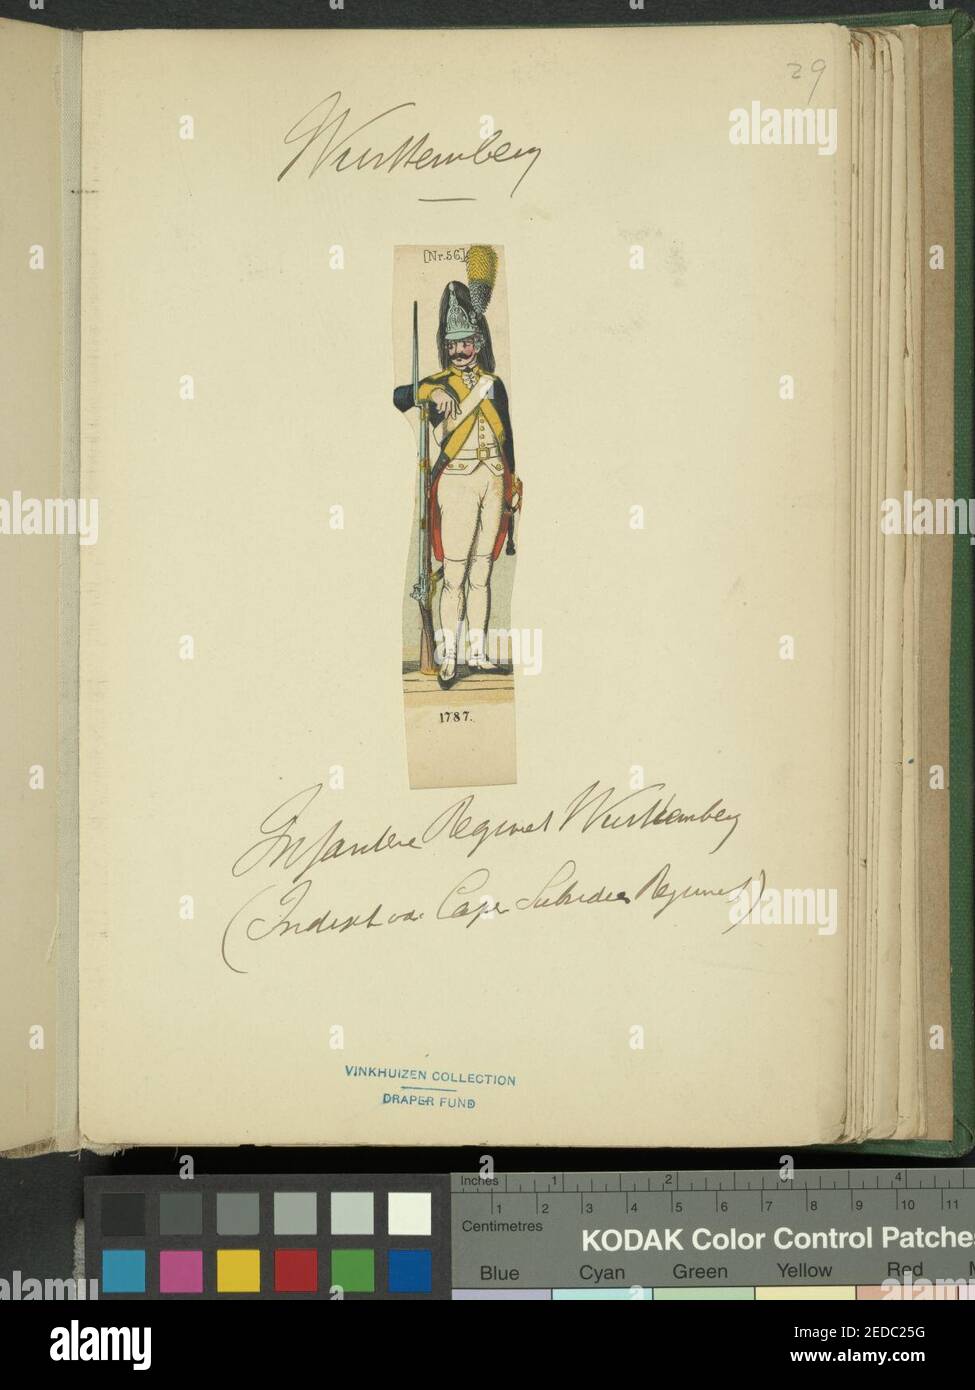 29
Wurttemberg
[Nr.56]
1787.
Infanterie Regiment Wurttemberg
Cape Regiment)
VINKHUIZEN COLLECTION
DRAPER FUND
Inches 1 2 3 4
1 2 3 4 5 6 7 8 9 10 11
Centimetres
KODAK Color Control Patches
Blue Cyan Green Yellow Red
alamy
alamy
alamy
alamy
alamy
alamy
alamy
Image ID: 2EDC25G
www.alamy.com